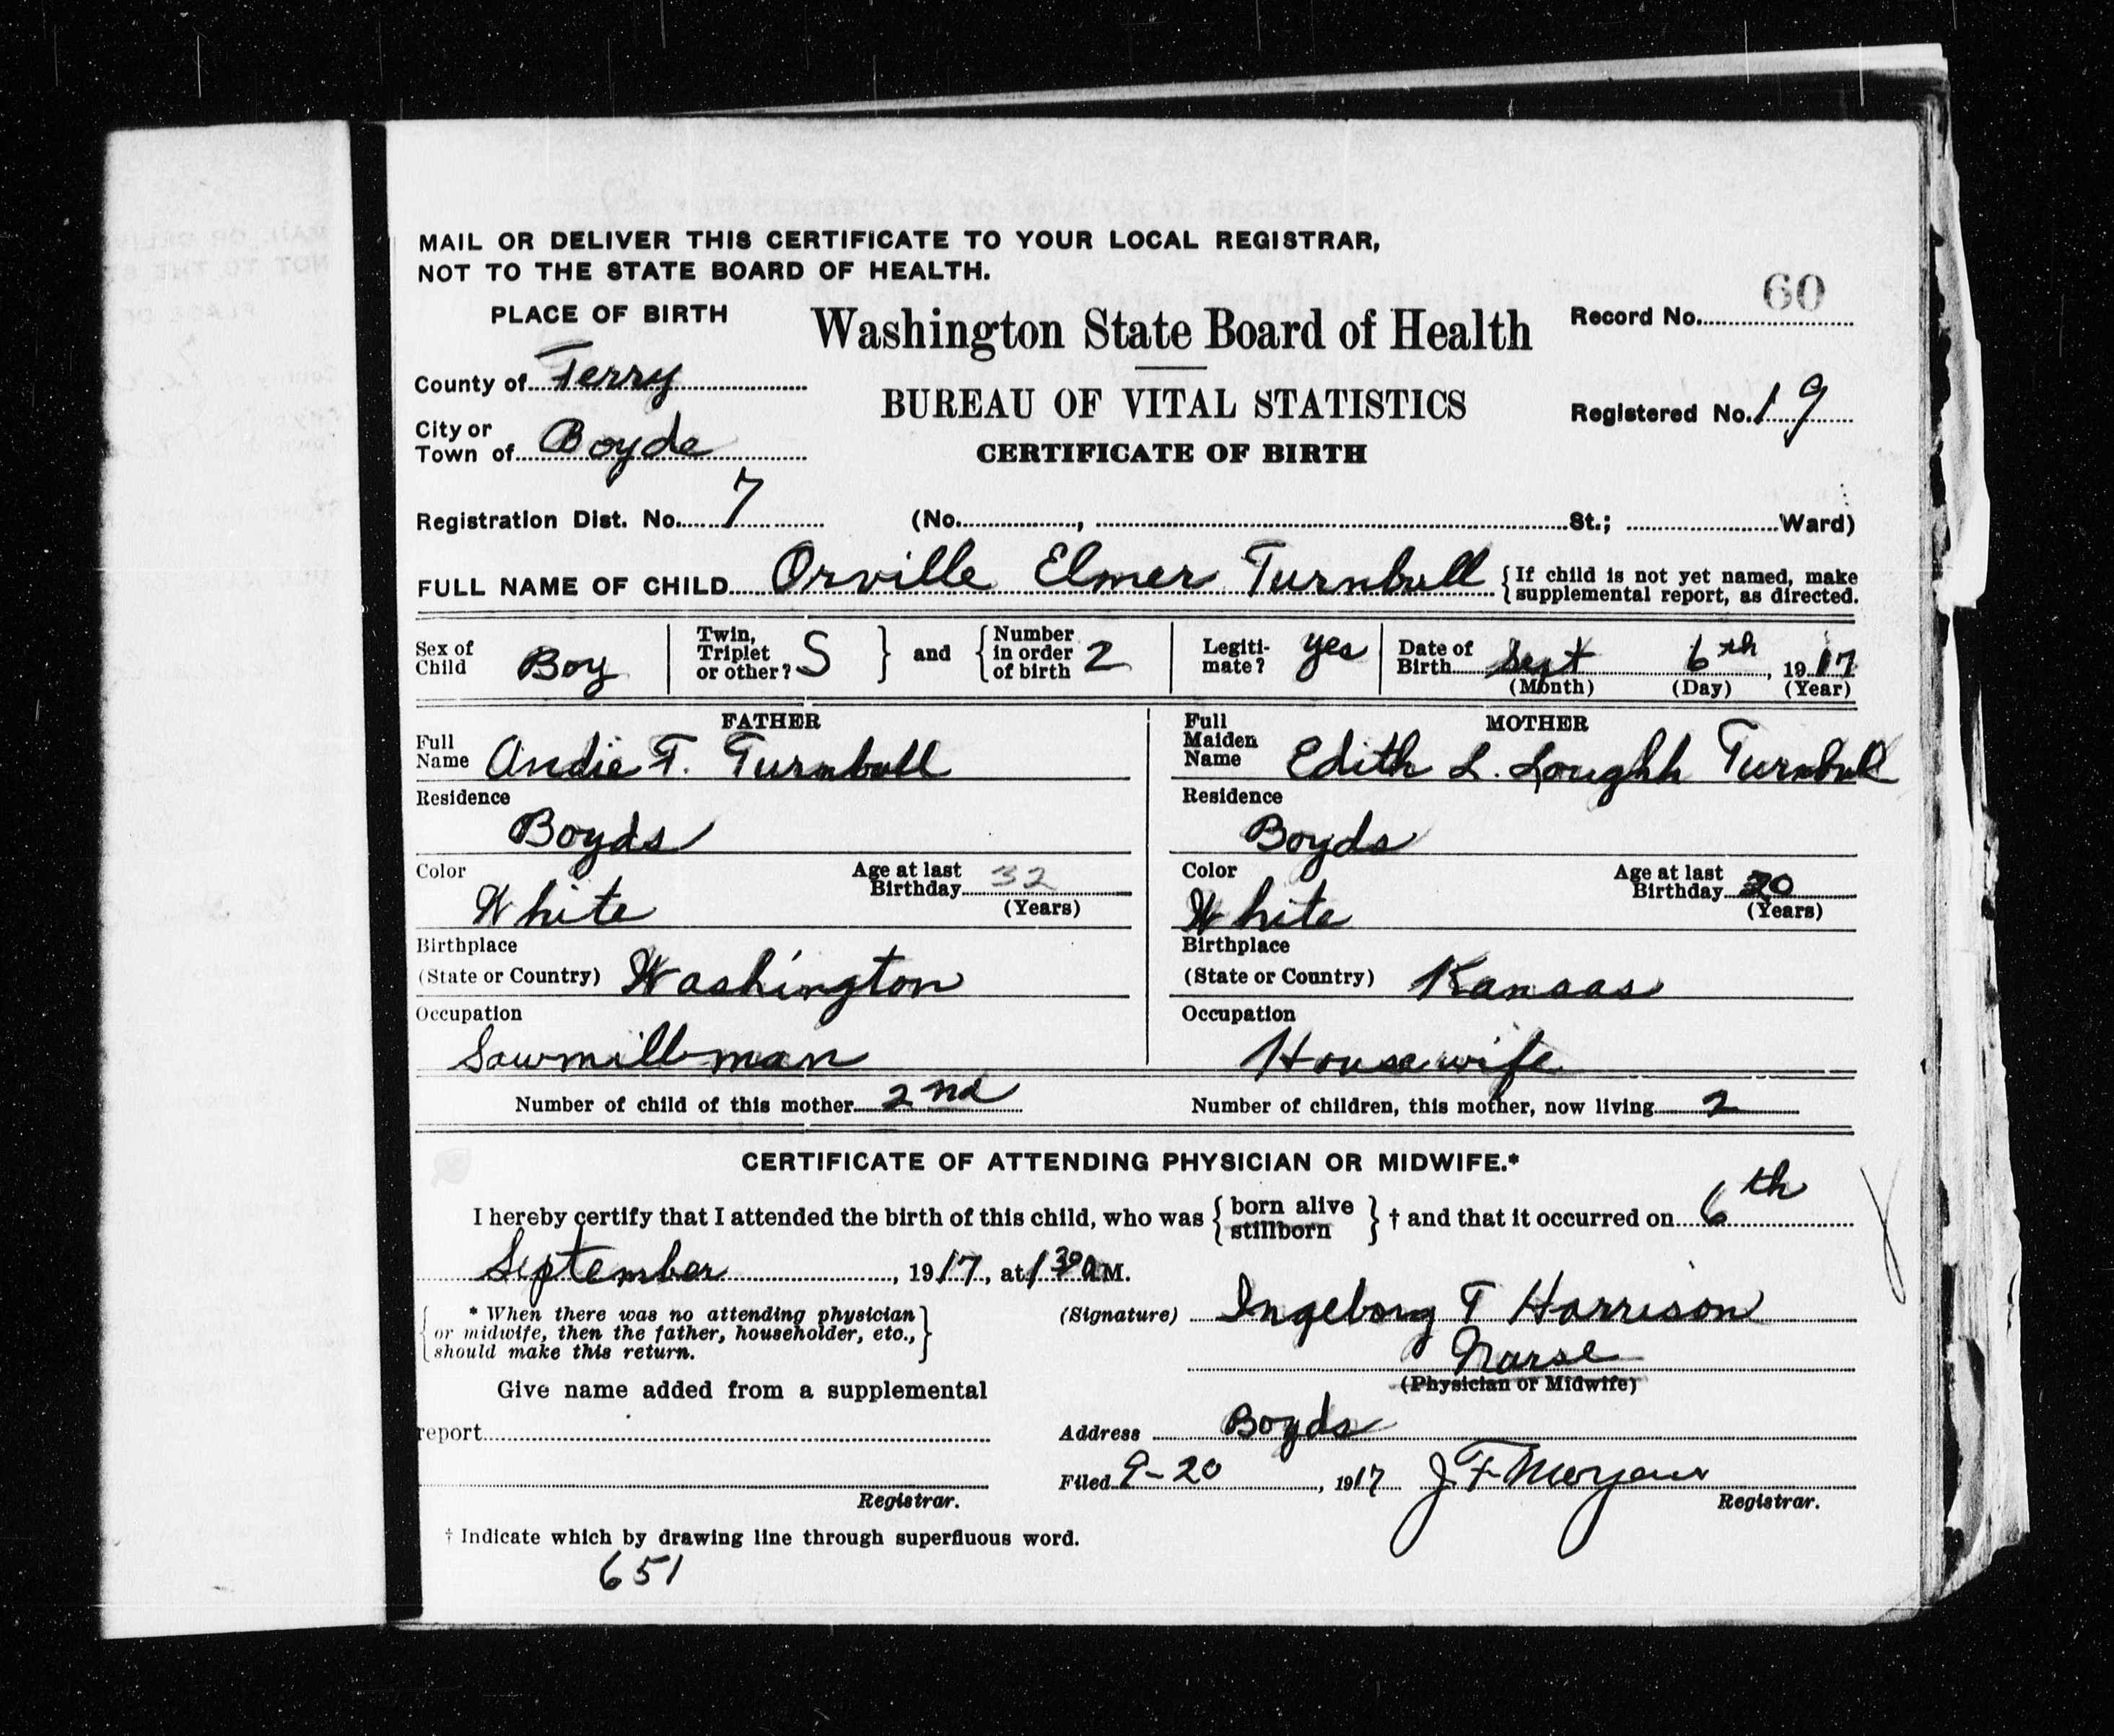 MAIL OR DELIVER THIS CERTIFICATE TO YOUR LOCAL REGISTRAR,
NOT TO THE STATE BOARD OF HEALTH.
PLACE OF BIRTH
Washington State Board of Health
Record No. 60
County of Ferry
BUREAU OF VITAL STATISTICS
Registered No. 19
City or
Town of Boyde
CERTIFICATE OF BIRTH
Registration Dist. No. 7 (No. , St.; Ward)
FULL NAME OF CHILD Orville Elmer Turnbull {If child is not yet named, make
supplemental report, as directed.
Sex of
Child Boy
Twin,
Triplet
or other? S } and { Number
in order
of birth 2
Legiti-
mate? yes
Date of
Birth Sept 6th, 1917
(Month) (Day) (Year)
FATHER
Full
Name Andie T. Turnbull
Residence
Boyds
Color
White
Age at last
Birthday 32
(Years)
Birthplace
(State or Country) Washington
Occupation
Sawmillman
MOTHER
Full
Maiden
Name Edith L. Turnbull
Residence
Boyds
Color
White
Age at last
Birthday
(Years)
Birthplace
(State or Country) Kansas
Occupation
Housewife
Number of child of this mother 2nd
Number of children, this mother, now living 2
CERTIFICATE OF ATTENDING PHYSICIAN OR MIDWIFE.*
I hereby certify that I attended the birth of this child, who was { born alive
stillborn } † and that it occurred on 6th
September, 1917, at 1 30 a M.
* When there was no attending physician
or midwife, then the father, householder, etc.,
should make this return.
(Signature) Ingeborg T Harrison
Nurse
(Physician or Midwife)
Give name added from a supplemental
report
Registrar.
Address Boyds
Filed 9-20, 1917 J. F. Morgan
Registrar.
† Indicate which by drawing line through superfluous word.
651